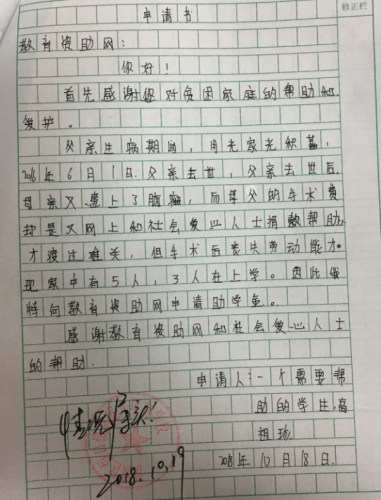 修正栏
申请书
教育资助网：
你好！
首先感谢您对贫困家庭的帮助和
爱护。
父亲生病期间，用光家光积蓄，
2018年6月1日父亲去世，父亲去世后，
母亲又患上了脑瘤，而母父的手术费
却是又网上和社会爱心人士捐款帮助，
才渡过难关，但手术后丧失劳动能才。
现家中有5人，3人在上学。因此做
特向教育资助网申请助学免。
感谢教育资助网和社会爱心人士
的帮助.
申请人：一个需要帮
助的学生.高
祖
情况属实！
2018年10月18日.
2018.10.19